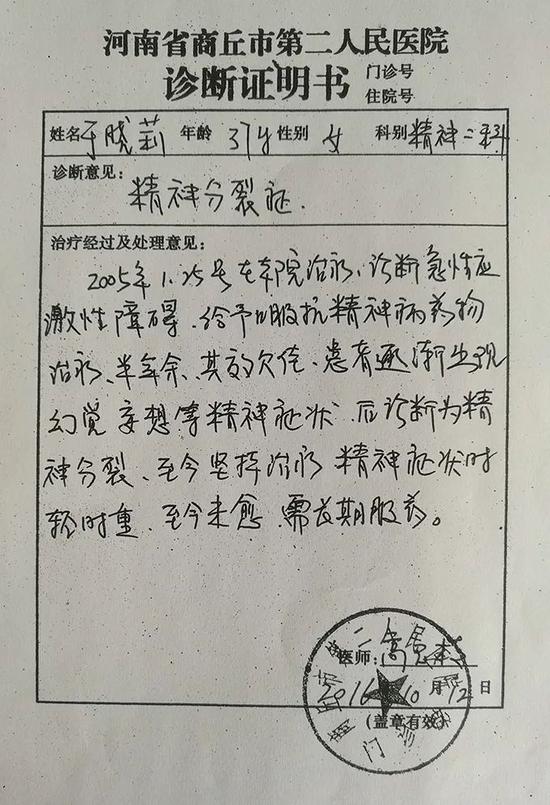 河南省商丘市第二人民医院
诊断证明书 门诊号
住院号
姓名 于晓莉 年龄 37岁 性别 女 科别 精神二科
诊断意见:
精神分裂症.
治疗经过及处理意见:
2005年1.25号在本院治疗、诊断急性应
激性障碍、给予口服抗精神病药物
治疗、半年余、其效欠佳、患者逐渐出现
幻觉妄想等精神症状、后诊断为精
神分裂、至今坚持治疗 精神症状时
轻时重、至今未愈、需长期服药。
医师:
2016 10月12日
(盖章有效)